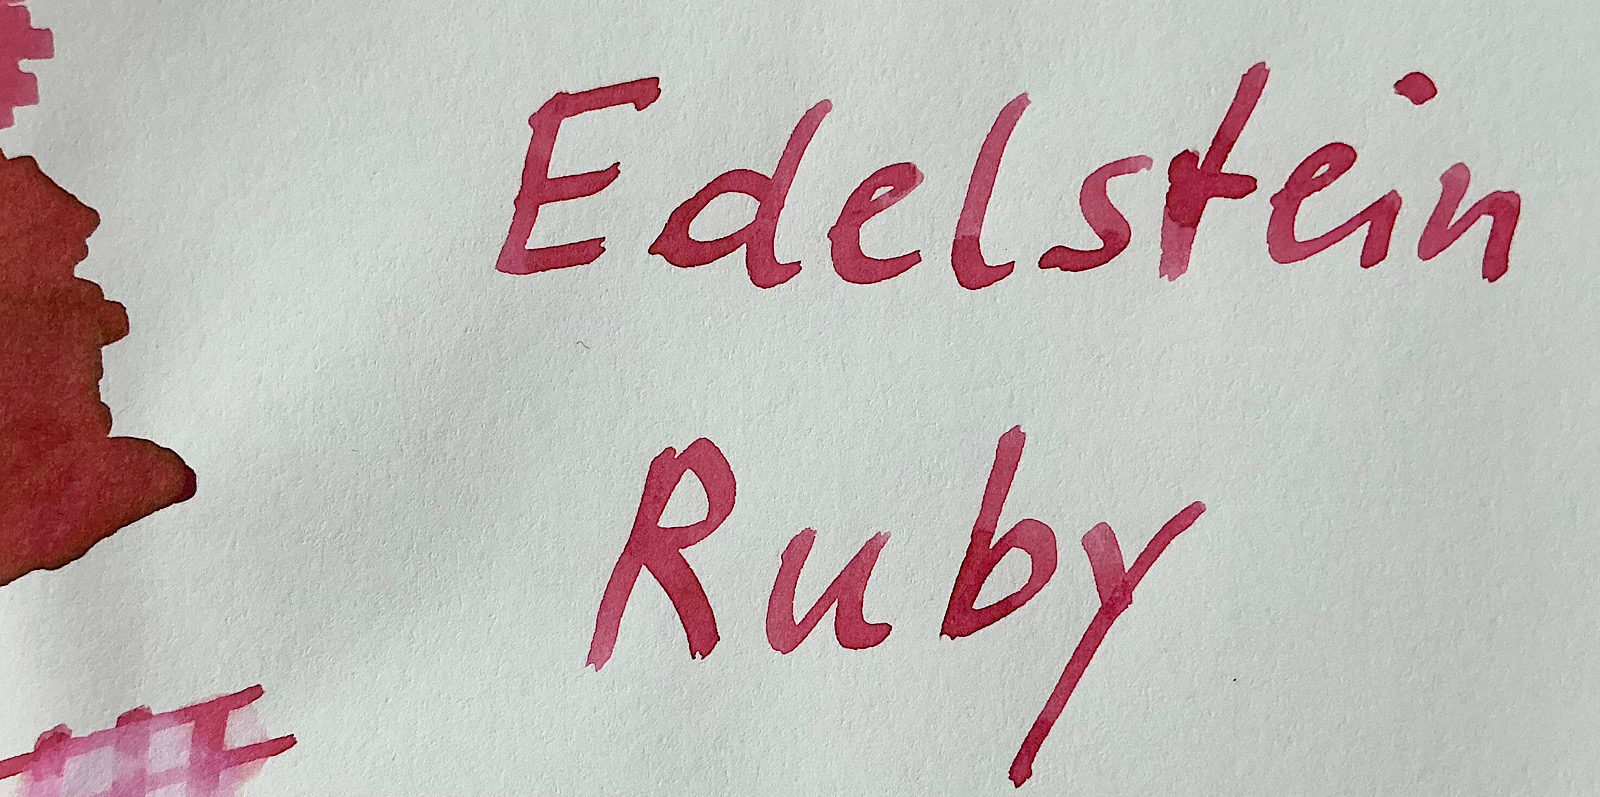 Edelstein
Ruby